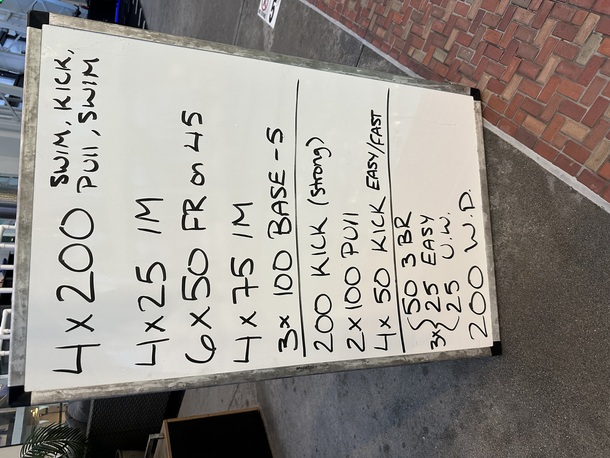 4 x 200 SWIM, KICK,
PUll, SWIM
4 x 25 IM
6 x 50 FR on 45
4 x 75 IM
3 x 100 BASE - 5
200 KICK (strong)
2 x 100 PUll
4 x 50 KICK EASY/FAST
3x { 50 3 BR
25 EASY
25 U.W.
200 W.D.